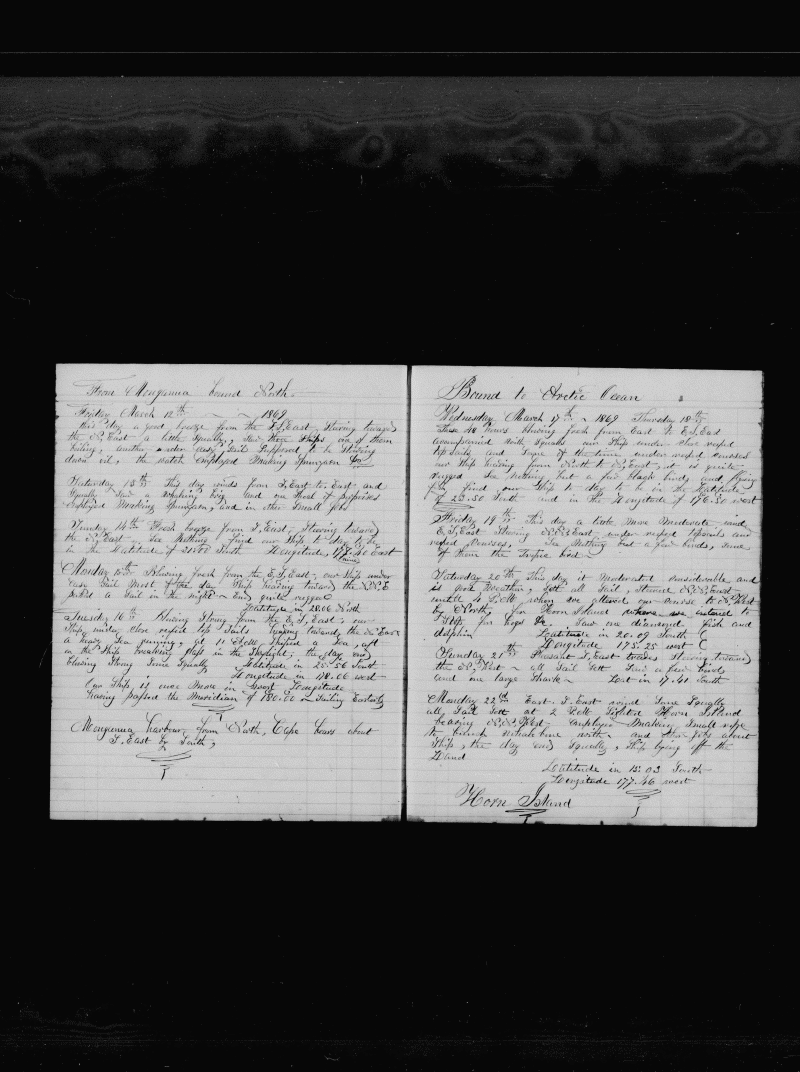 From Mongunua bound North.
Friday March 12th ~ ~ ~ 1869
this day a good breeze from the S, East, Steering towards
the N, East a little Squally, Saw three Ships one of them
boiling, another under easy Sail Supposed to be Stowing
down oil, the watch employed Making Spunyarn
Saturday 13th This day winds from S, East to East and
Squally Saw a and one Shoal of porpoises
employed Making Spunyarn, and in other Small jobs
Sunday 14th Fresh breeze from S, East, Steering towards
the N, East ~ See Nothing ~ find our Ship to day to be
in the Latitude of South Longitude, East
Monday 15th Blowing fresh from the E, S, East ~ our Ship under
ease Sail Most of the day Ship heading towards the N, N, E
past a Sail in the night ~ Ends quite rugged
Latitude in 28.06 South
Tuesday 16th Blowing Strong from the E, S, East, our
Ship under close reefed top Sails heading towards the N, East
a heavy Sea running, at 11 Shiped a Sea, aft
on the Ship breaking glass in the Skylight, the day ends
blowing Strong Some Squally Latitude in 25.56 South
Longitude in 178.06 west
Our Ship is once More in West Longitude
having passed the Meridian of 180.00 in Sailing Easterly
Mongunua harbour, from North, Cape bears about
S, East by South,
Bound to Arctic Ocean
Wednesday March 17th ~ 1869 Thursday 18th
These 48 hours blowing fresh from East to E, S, East
accompanied with Squalls our Ship under close reefed
topSails and Some of the time under reefed courses
our Ship heading from North to N, East, it is quite
rugged See Nothing but a few black birds and flying
fish find our Ship to day to be in the Latitude
of 23.50 South and in the Longitude of 176.30 west
Friday 19th This day a little More Moderate and
E, S, East Steering N, N, East under reefed topsails and
reefed Courses, See Nothing but a few birds, Some
of them the Tropic bird
Saturday 20th This day is Moderated considerable and
is good Weather, Sett all Sail, Steered N, N, East
until 4 P, M when we altered our course to N, West
by North, for Horn Island where we intend to
Stop for hogs &c. Saw one diamond fish and
dolphin Latitude in 20.09 South
Longitude 175.25 west
Sunday 21st Pleasant S, East trades Steering towards
the N, West ~ all Sail Sett Saw a few birds
and one large Shark ~ Latt in 17.41 South
Monday 22nd East S, East wind Some Squally
all Sail Sett at 2 Sighted Horn Island
bearing N, N, West, employed Making Small rope
to with ~ and other jobs about
Ship, the day ends Squally, Ship lying off the
Island
Latitude in 15.03 South
Longitude 177.46 west
Horn Island